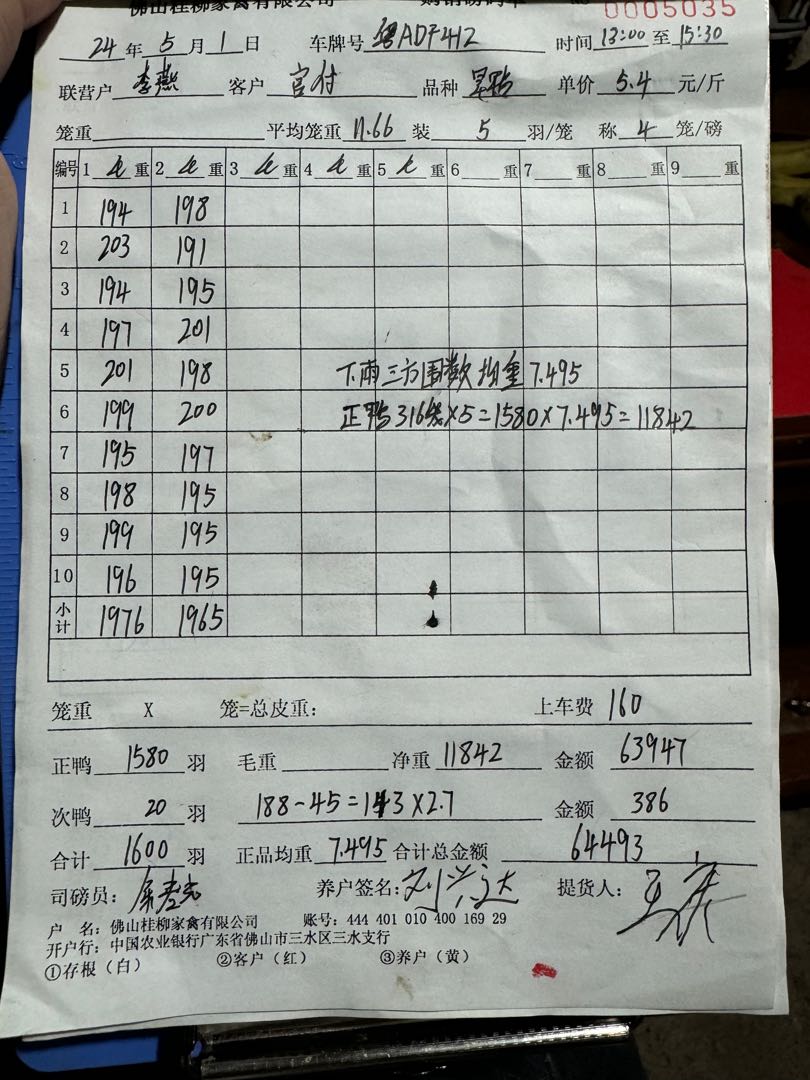 佛山桂柳家禽有限公司 购销磅码单 No 0005035
24年5月1日 车牌号 粤ADF412 时间 13:00至15:30
联营户 李燕 客户 宫付 品种 单价 5.4 元/斤
笼重 平均笼重 11.66 装 5 羽/笼 称 4 笼/磅
编号 1 毛重 2 毛重 3 毛重 4 毛重 5 毛重 6 重 7 重 8 重 9 重
1 194 198
2 203 191
3 194 195
4 197 201
5 201 198 下雨三方围数均重7.495
6 199 200 正鸭316笼×5=1580×7.495=11842
7 195 197
8 198 195
9 199 195
10 196 195
小计 1976 1965
笼重 X 笼=总皮重: 上车费 160
正鸭 1580 羽 毛重 净重 11842 金额 63947
次鸭 20 羽 188-45=143×2.7 金额 386
合计 1600 羽 正品均重 7.495 合计总金额 64493
司磅员: 养户签名: 刘兴达 提货人:
户 名: 佛山桂柳家禽有限公司 账号: 444 401 010 400 169 29
开户行: 中国农业银行广东省佛山市三水区三水支行
①存根(白) ②客户(红) ③养户(黄)